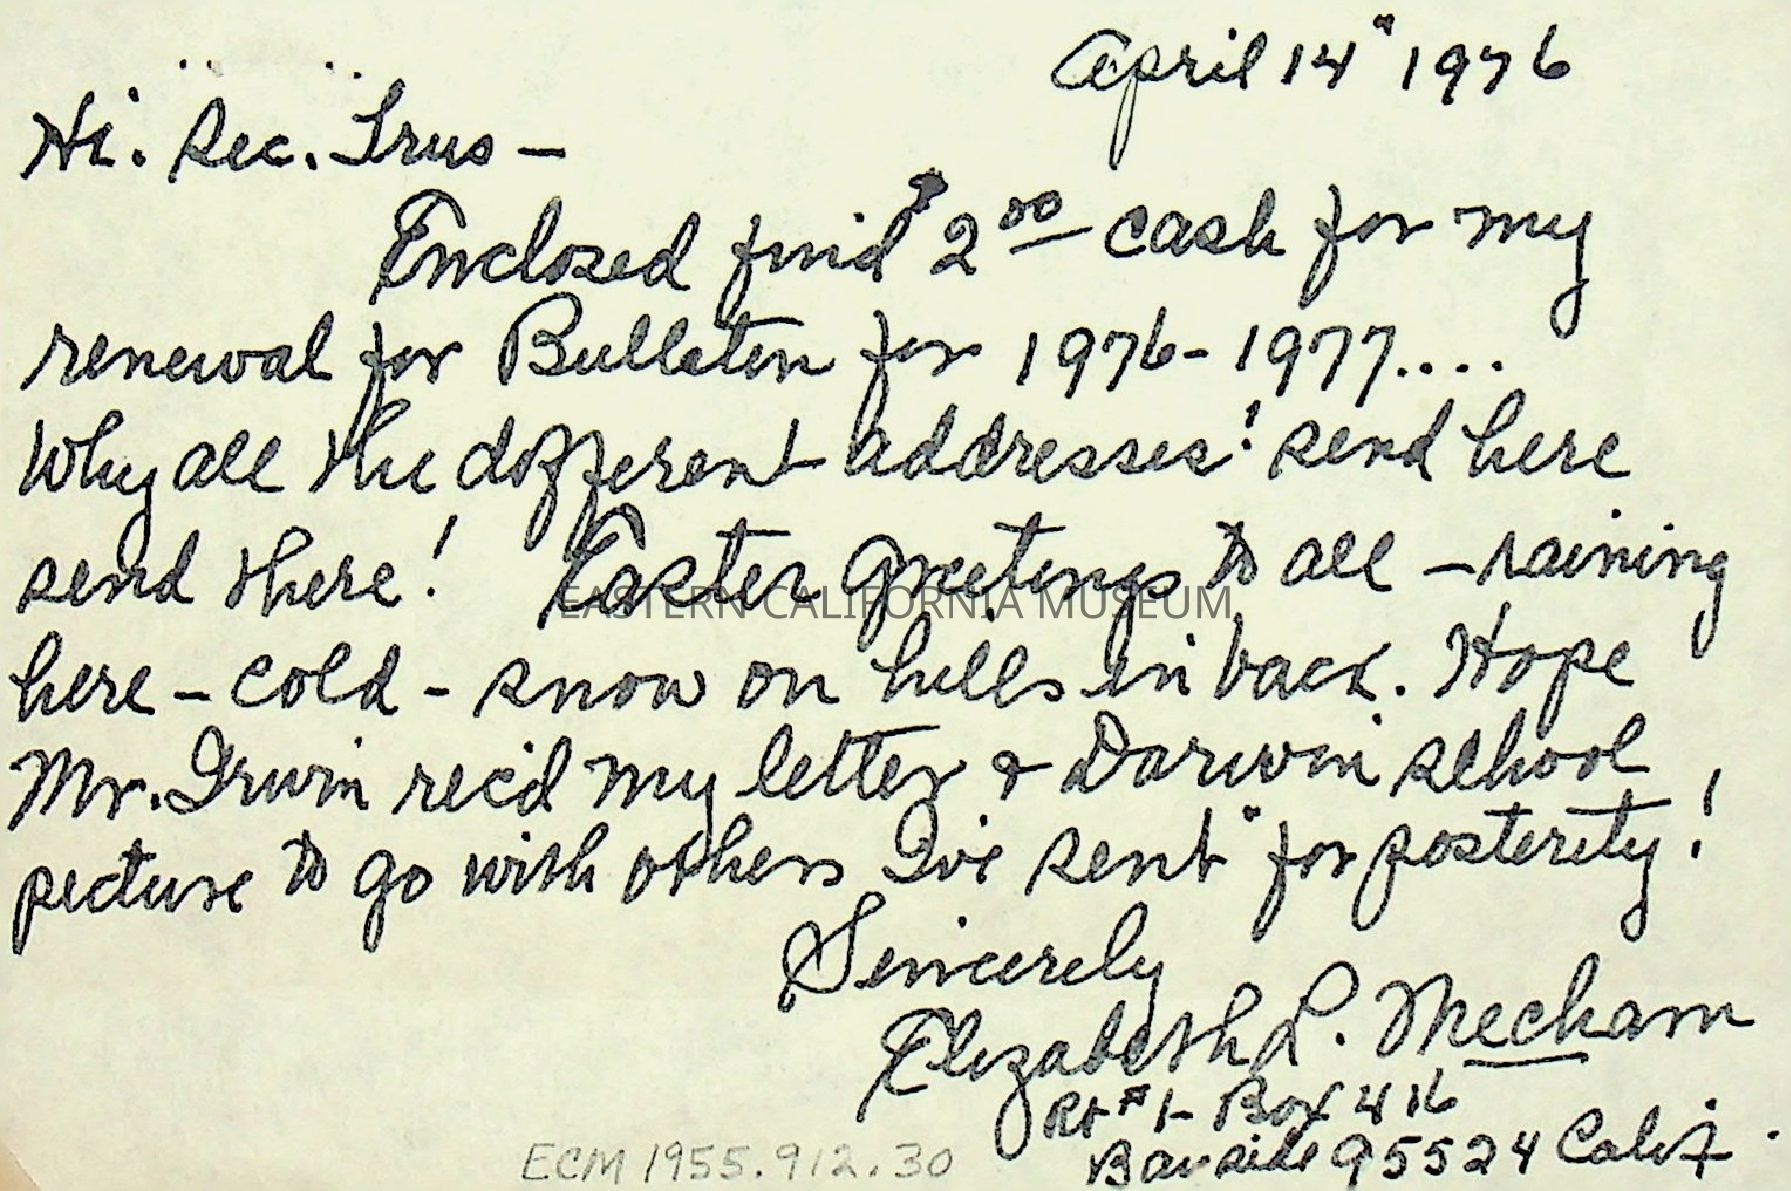 April 14" 1976
Hi. Sec. Trus —
Enclosed find $2.00 cash for my
renewal for Bulletin for 1976-1977....
Why all the different addresses! send here
send there! Easter Greetings to all — raining
EASTERN CALIFORNIA MUSEUM
here - cold - snow on hills in back. Hope
Mr. Irwin rec'd my letter & Darwin school
picture to go with others I've sent "for posterity!
Sincerely
Elizabeth L. Mecham
Rt #1- Box 416
Bayside 95524 Calif.
ECM 1955.912.30